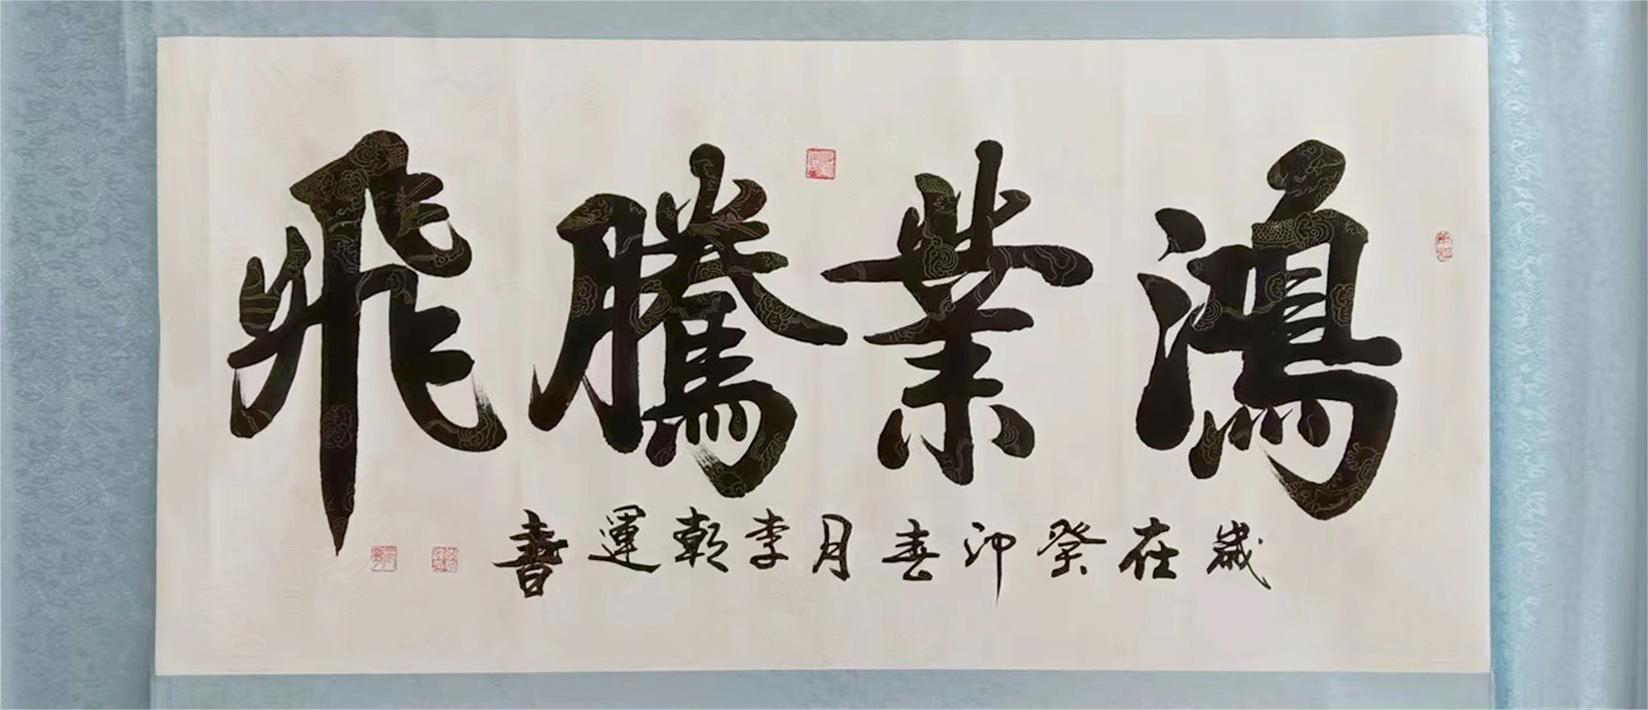 鴻業騰飛
歲在癸卯春月李乾運書